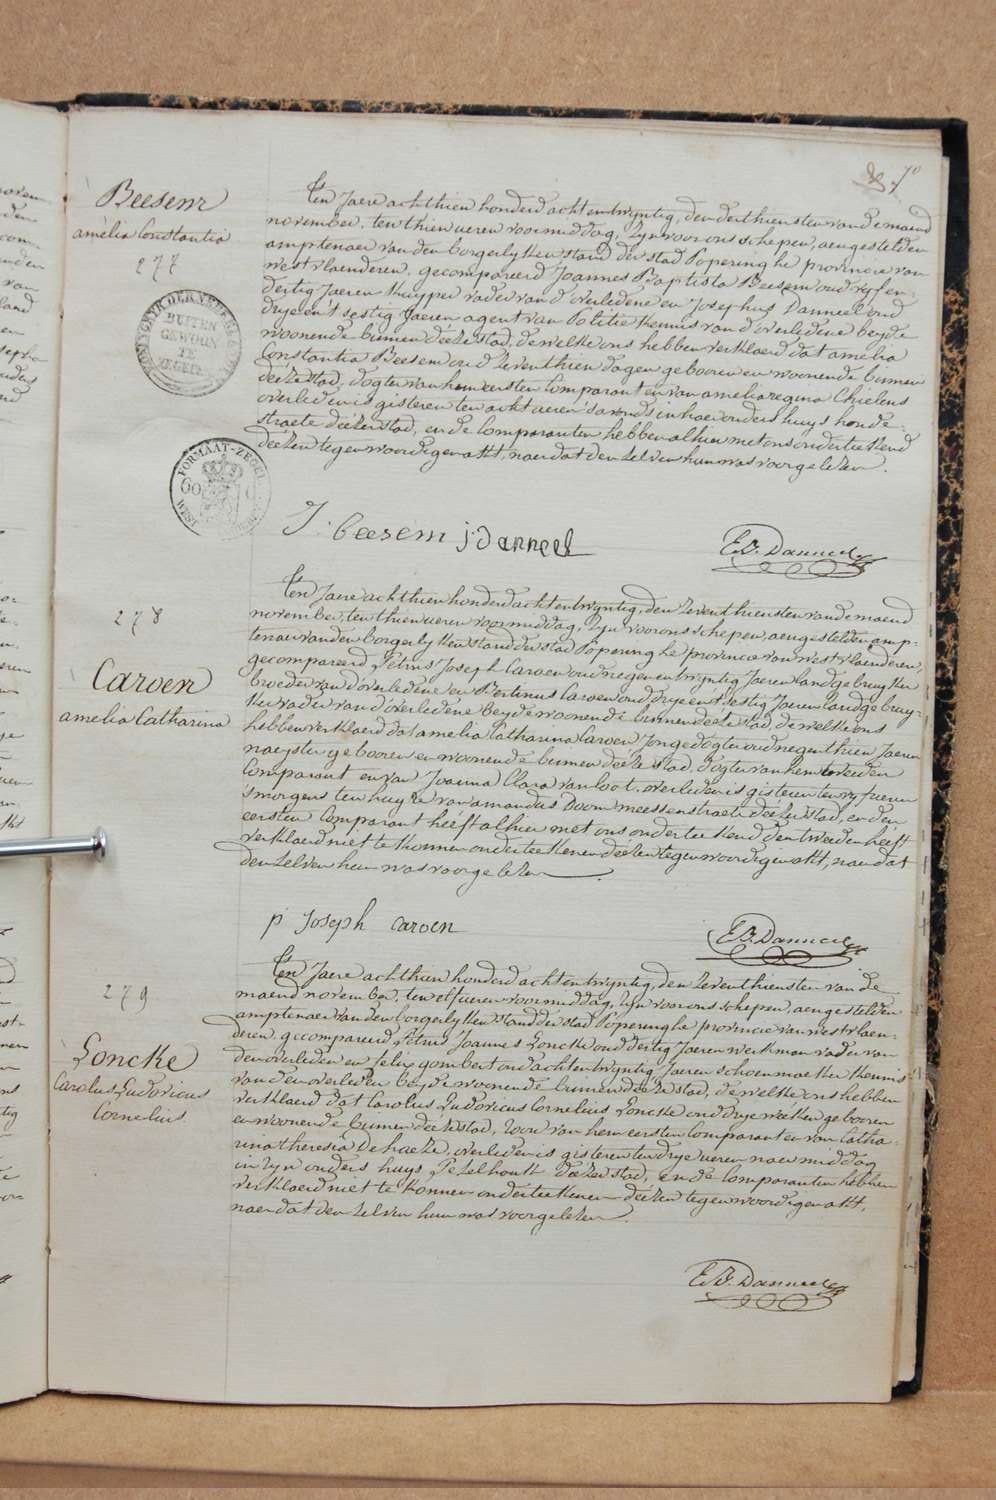 70
Beesem
amelia Constantia
277
BUITEN
GEWOON
ZEGEL
FORMAAT-ZEGEL
WEST
Ten Jaere achthien honderd acht en twyntig, den derthiensten van de maend
november, ten thien ueren voormiddag, Zyn voor ons schepen, aengestelden
amptenaer van den borgerlyken stand der stad Poperinghe provincie van
westvlaenderen, gecompareerd Joannes Baptista Beesem oud vyf en
dertig Jaeren Kuyper vader van d'overledene en Josephus Danneel oud
drye en t'sestig Jaeren agent van Politie Kennis van d'overledene beyde
woonende binnen deeze stad, dewelke ons hebben verklaerd dat amelia
Constantia Beesem oud zeventhien dagen gebooren en woonende binnen
deeze stad, dogter van hem eersten Comparant en van amelia regina Chielens
overleden is gisteren ten acht ueren s'avonds in haer ouders huys honde-
straete deezer stad, en de Comparanten hebben alhier met ons onderteekend
deezen tegenwoordigen akt, naer dat den zelven hun was voorgelezen.
J: beesem j: danneel
E.B. Danneel
278
Caroen
amelia Catharina
Ten Jaere achthien honderd acht en twyntig, den zeventhiensten van de maend
november, ten thien ueren voormiddag, Zyn voor ons schepen, aengestelden amp-
tenaer van den borgerlyken stand der stad Poperinghe provincie van westvlaenderen,
gecompareerd Petrus Joseph Caroen oud negen en twyntig Jaeren landgebruyker
broeder van d'overledene en Bertinus Caroen oud drye en t'sestig Jaeren landgebruy-
ker vader van d'overledene beyde woonende binnen deeze stad, dewelke ons
hebben verklaerd dat amelia Catharina Caroen Jonge dogter oud negenthien Jaeren
naeyster gebooren en woonende binnen deeze stad, dogter van hem tweeden
Comparant en van Joanna Clara van loot, overleden is gisteren ten vyf ueren
s'morgens ten huyze van amandus Doom meessenstraete deezer stad, en den
eersten Comparant heeft alhier met ons onderteekend den tweeden heeft
verklaerd niet te konnen onderteekenen deezen tegenwoordigen akt, naer dat
den zelven hun was voorgelezen
p joseph caroen
E.B. Danneel
279
Loncke
Carolus Ludovicus
Cornelius
Ten Jaere achthien honderd acht en twyntig, den zeventhiensten van de
maend november, ten elf ueren voormiddag, Zyn voor ons schepen, aengestelden
amptenaer van den borgerlyken stand der stad Poperinghe provincie van westvlaen-
deren, gecompareerd Petrus Joannes Loncke oud dertig Jaeren werkman vader van
den overleden en felix gombert oud acht en twyntig Jaeren schoenmaeker Kennis
van den overleden beyde woonende binnen deeze stad, dewelke ons hebben
verklaerd dat Carolus Ludovicus Cornelius Loncke oud drye weeken gebooren
en woonende binnen deeze stad, zoon van hem eersten Comparant en van Catha-
rina theresia Dehaeze, overleden is gisteren ten drye ueren naermiddag
in zyn ouders huys Pezelhoek deezer stad, en de Comparanten hebben
verklaerd niet te konnen onderteekenen deezen tegenwoordigen akt,
naer dat den zelven hun was voorgelezen.
E.B. Danneel